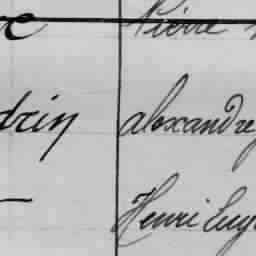 Pierre
drin alexandre
Henri Eug